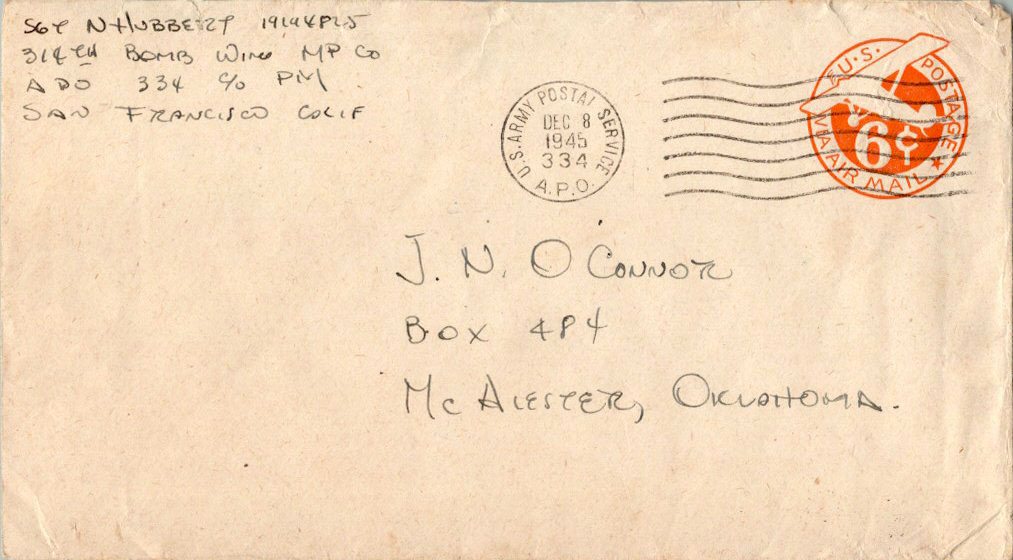 SGT N HUBBERT
314TH BOMB WING MP CO
APO 334 C/O PM
SAN FRANCISCO CALIF
U.S. ARMY POSTAL SERVICE
DEC 8
1945
334
A.P.O.
U.S. POSTAGE
6¢
VIA AIR MAIL
J. N. O CONNOR
BOX 484
MC ALESTER, OKLAHOMA.